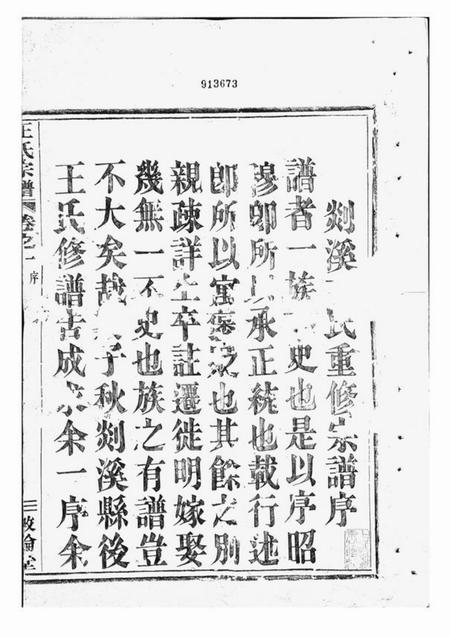 913673
剡溪 氏重修宗譜序
譜者一族 史也是以序昭
穆卽所以承正統也載行述
卽所以寓褒 也其餘之別
親疎詳生卒註遷徙明嫁娶
幾無一不史也族之有譜豈
不大矣哉 子秋剡溪縣後
王氏修譜告成 余一序余
王氏宗譜 卷之一 序
三 敦倫堂